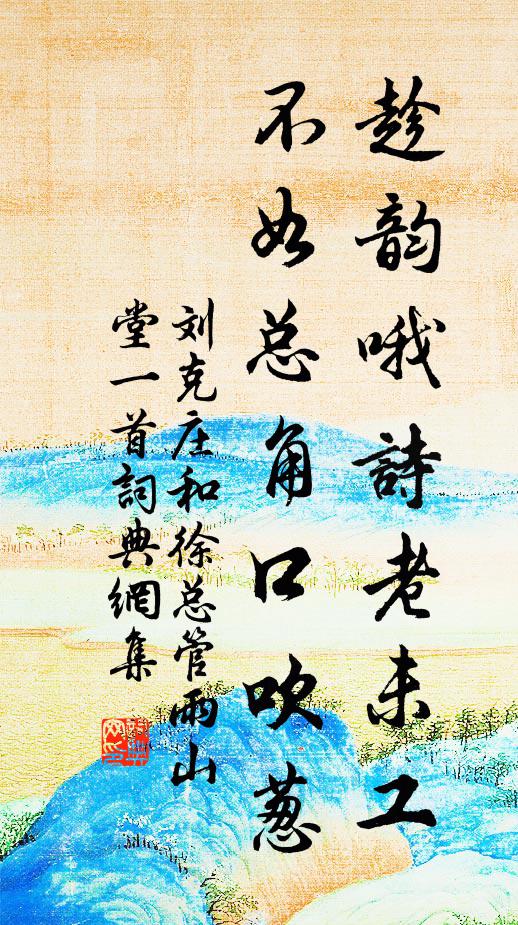 趁韵哦詩老未工
不如总角口吹葱
刘克庄和徐总管雨山
堂一首詞典網集